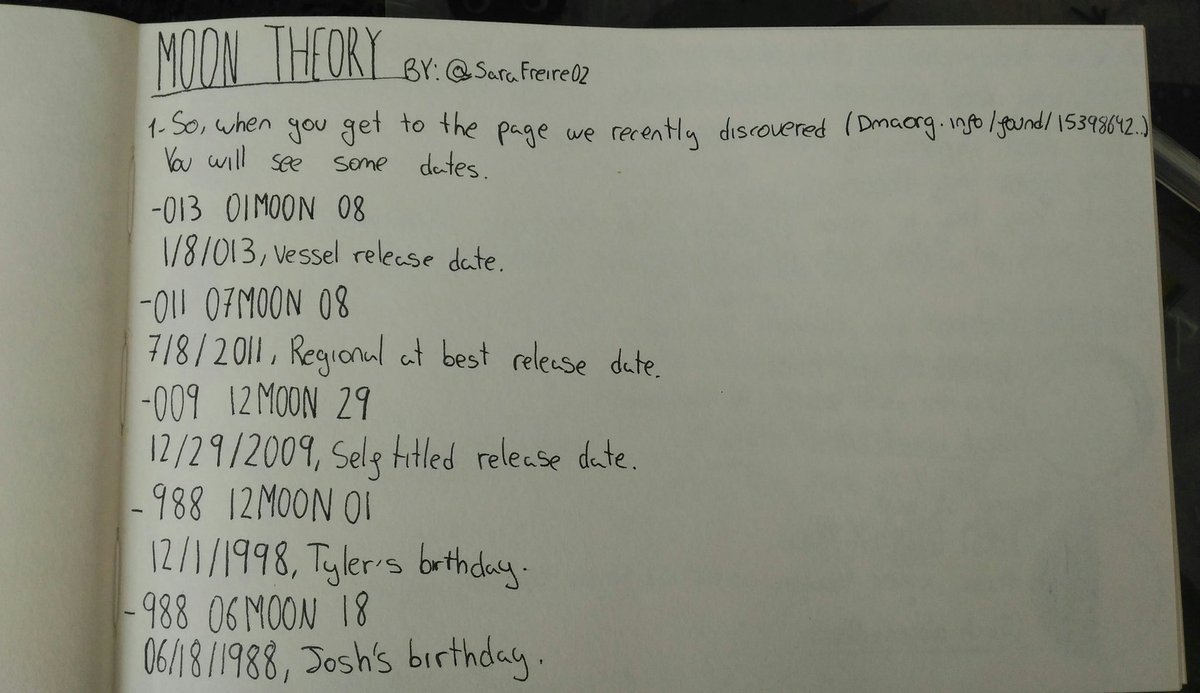 MOON THEORY BY: @SaraFreire02
1-So, when you get to the page we recently discovered (Dmaorg.info/found/15398642..)
You will see some dates.
-013 01MOON 08
1/8/013, Vessel release date.
-011 07MOON 08
7/8/2011, Regional at best release date.
-009 12MOON 29
12/29/2009, Self titled release date.
-988 12MOON 01
12/1/1998, Tyler's birthday.
-988 06MOON 18
06/18/1988, Josh's birthday.